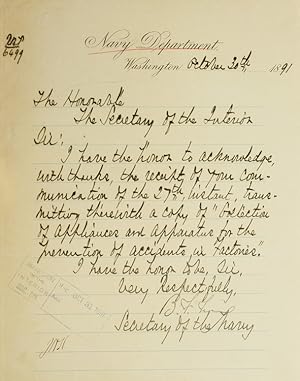 Navy Department,
Washington October 30th, 1891
The Honorable
The Secretary of the Interior
Sir:
I have the honor to acknowledge,
with thanks, the receipt of your com-
munication of the 27th, instant, trans-
mitting therewith a copy of "Collection
of Appliances and Apparatus for the
Prevention of accidents in Factories."
I have the honor to be, Sir,
Very respectfully,
B. F.
Secretary of the Navy